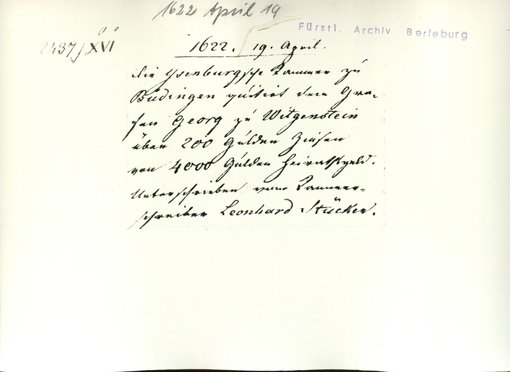 1622 April 19
Fürstl. Archiv Berleburg
2437/XVI
1622. 19. April.
Die Ysenburgsche Kammer zu
Büdingen quitirt dem Gra-
fen Georg zu Witgenstein
über 200 Gulden Zinsen
von 4000 Gulden Heirathsgeld.
Unterschrieben vom Kammer-
schreiber Leonhard Stücker.